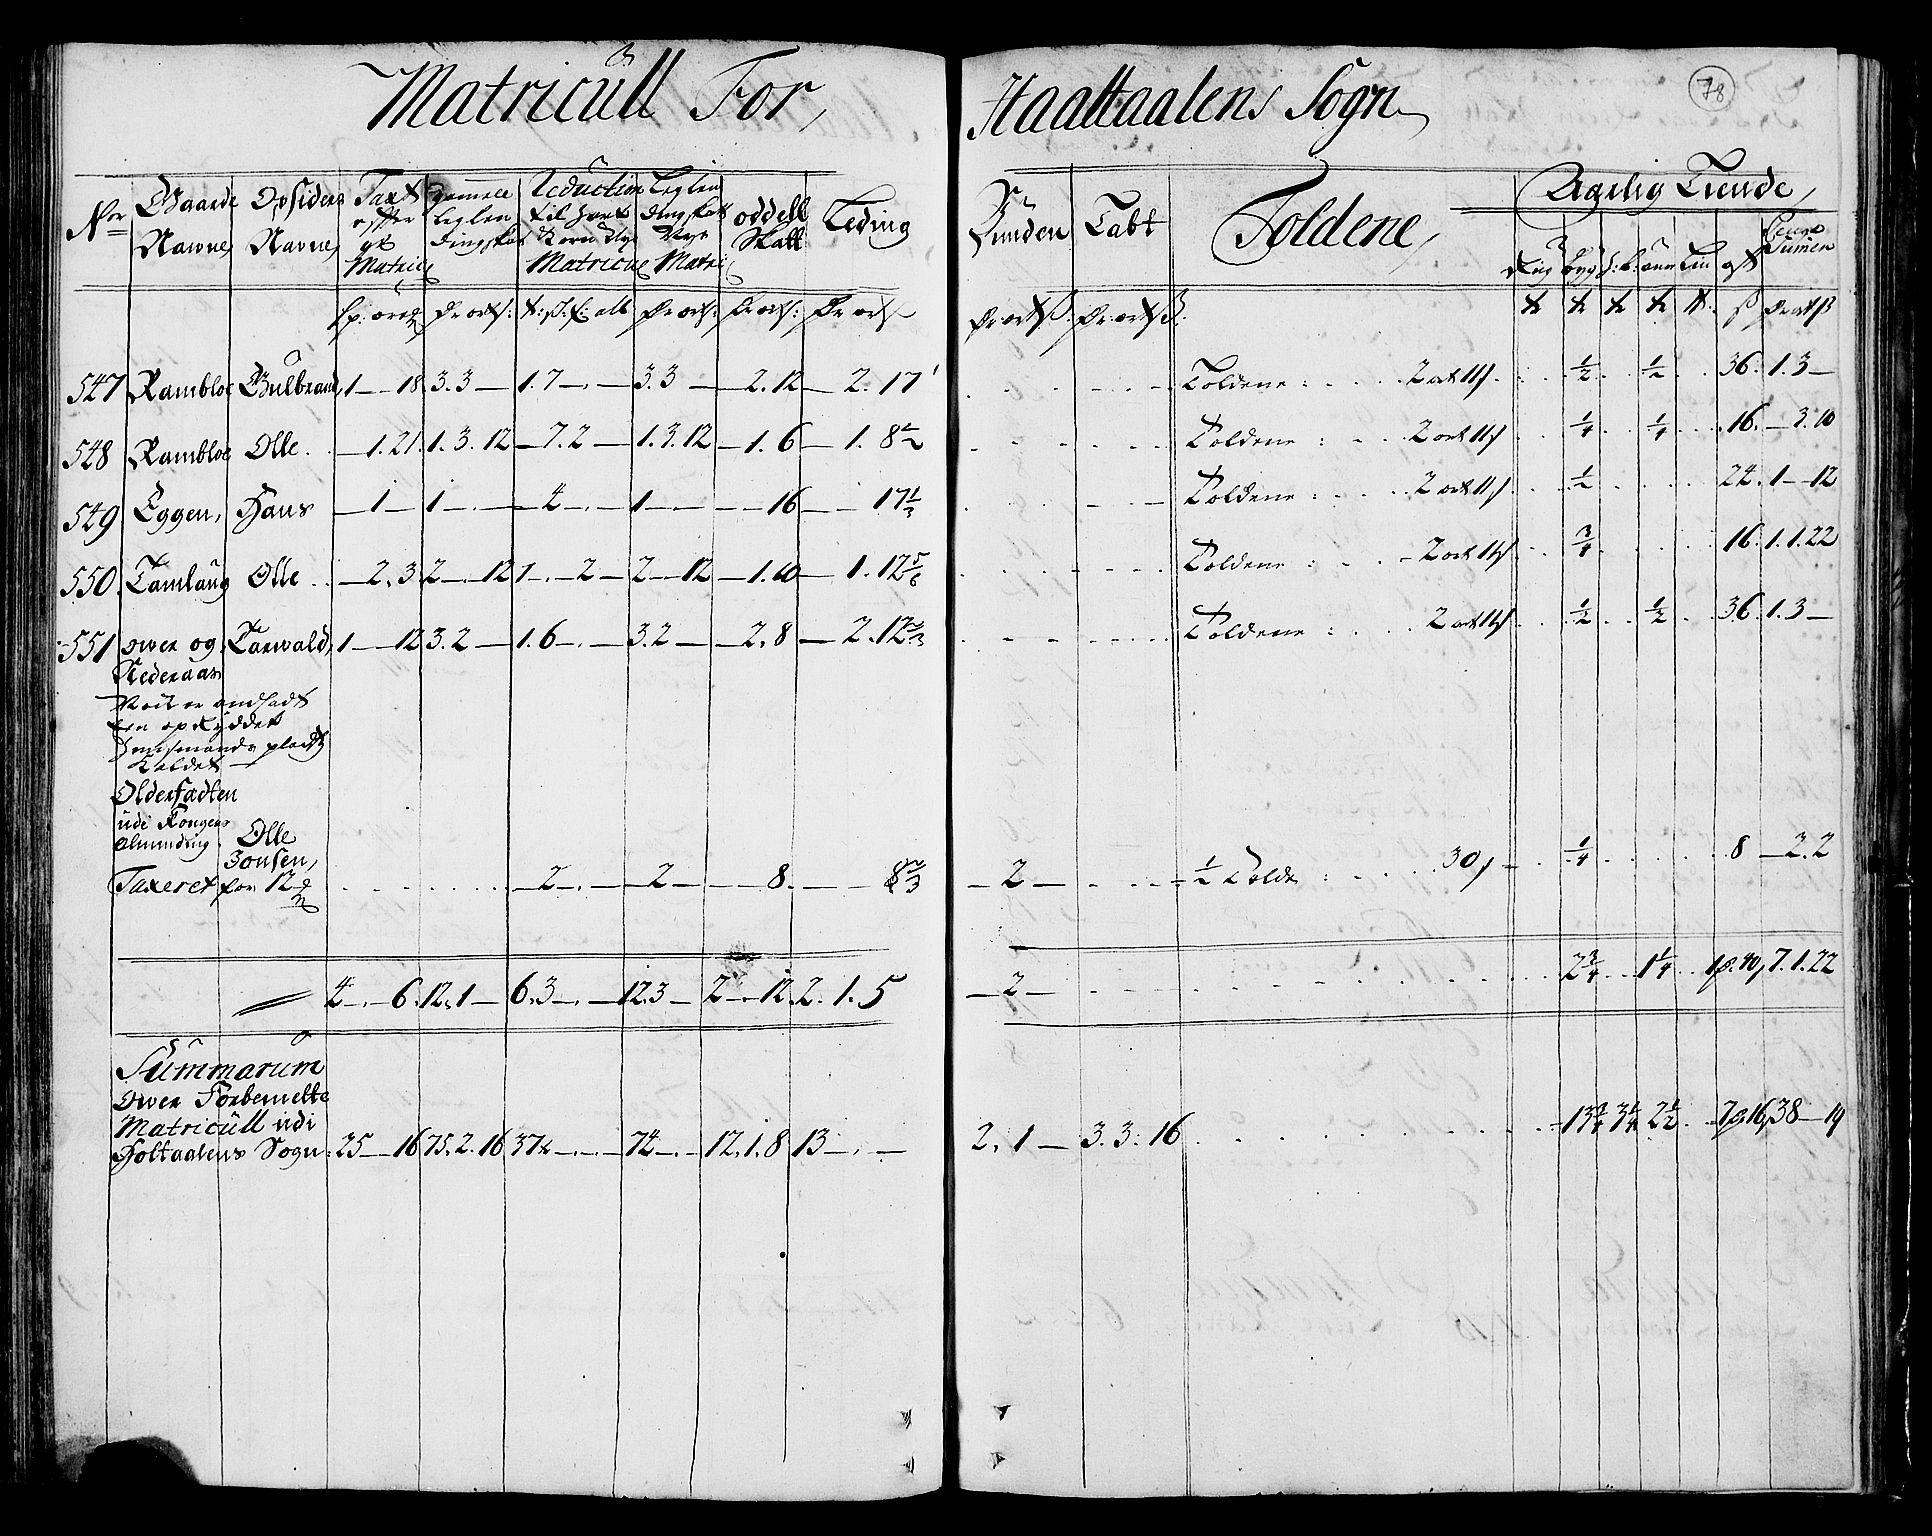 Matricull For, Haaltaalens Sogn
78
Nor Gaarde Nawne, Opsiders Navne, Taxt effter gl Matric: Gamell Leglen dingskat Reduction til hart Korn Nye Matricul Leglen dingskatt Nye Matric: oddell Skatt Leding
Funden Tabt Toldene, Aarlig Tiende,
Rug byg h: k: aun Lin ost Penge Summen
547 Rambloe Gulbrand, 1 — 18. 3. 3 — 1. 7 —.— 3. 3 — — 2. 12 — 2. 17
Toldene: 2 ort 11 s. ½ ½ 36. 1. 3 —
548 Rambloe Olle — 1. 21. 1. 3. 12 — 7. 2 — 1. 3. 12 — 1. 6 — 1. 8½
Toldene: 2 ort 11 s ¼ ¼ 16. — 3. 10
549 Eggen, Hans — 1 — 1 —.— — 4 —.— 1 —.— — — 16 — 17⅓
Toldene: 2 ort 11 s ½ 24. 1 — 12
550. Tamlaug Olle — 2. 3. 2 — 12 1 —. 2 — 2 — 12 — 1. 10 — 1. 12⅚
Toldene: 2 ort 11 s ¾ 16. 1. 1. 22
551 ower og Nederaas Tarwald, 1 — 12 3. 2 — 1. 6 —.— 3. 2 — — 2. 8 — 2. 12⅔
Toldene: 2 ort 11 s ½ ½ 36. 1. 3 —
een op Ryddet
Huusmands pladtz
Kaldet —
Olderfadten
udi Kongens
Alminding. Olle
Jonsen,
Taxeret for 12 — 2 —.— — 2 — — 8. — 8⅔
— 2 — ½ Told: 30 s — ¼ 8 — 2. 2
4 —. 6. 12. 1 — 6. 3 —.— 12. 3 — 2 —. 12. 2. 1. 5
— 2 — 2¾ 1¼ 1 p. 10, 7. 1. 22
Summarum
Over Forbemelte
Matricull udi
Holtaalens Sogn: 25 — 16 75. 2. 16 37 —.— 74 —.— 12. 1. 8 13 —.—
2. 1 — 3. 3. 16 13¾ 3¼ 2½ 7 p 16, 38 — 19